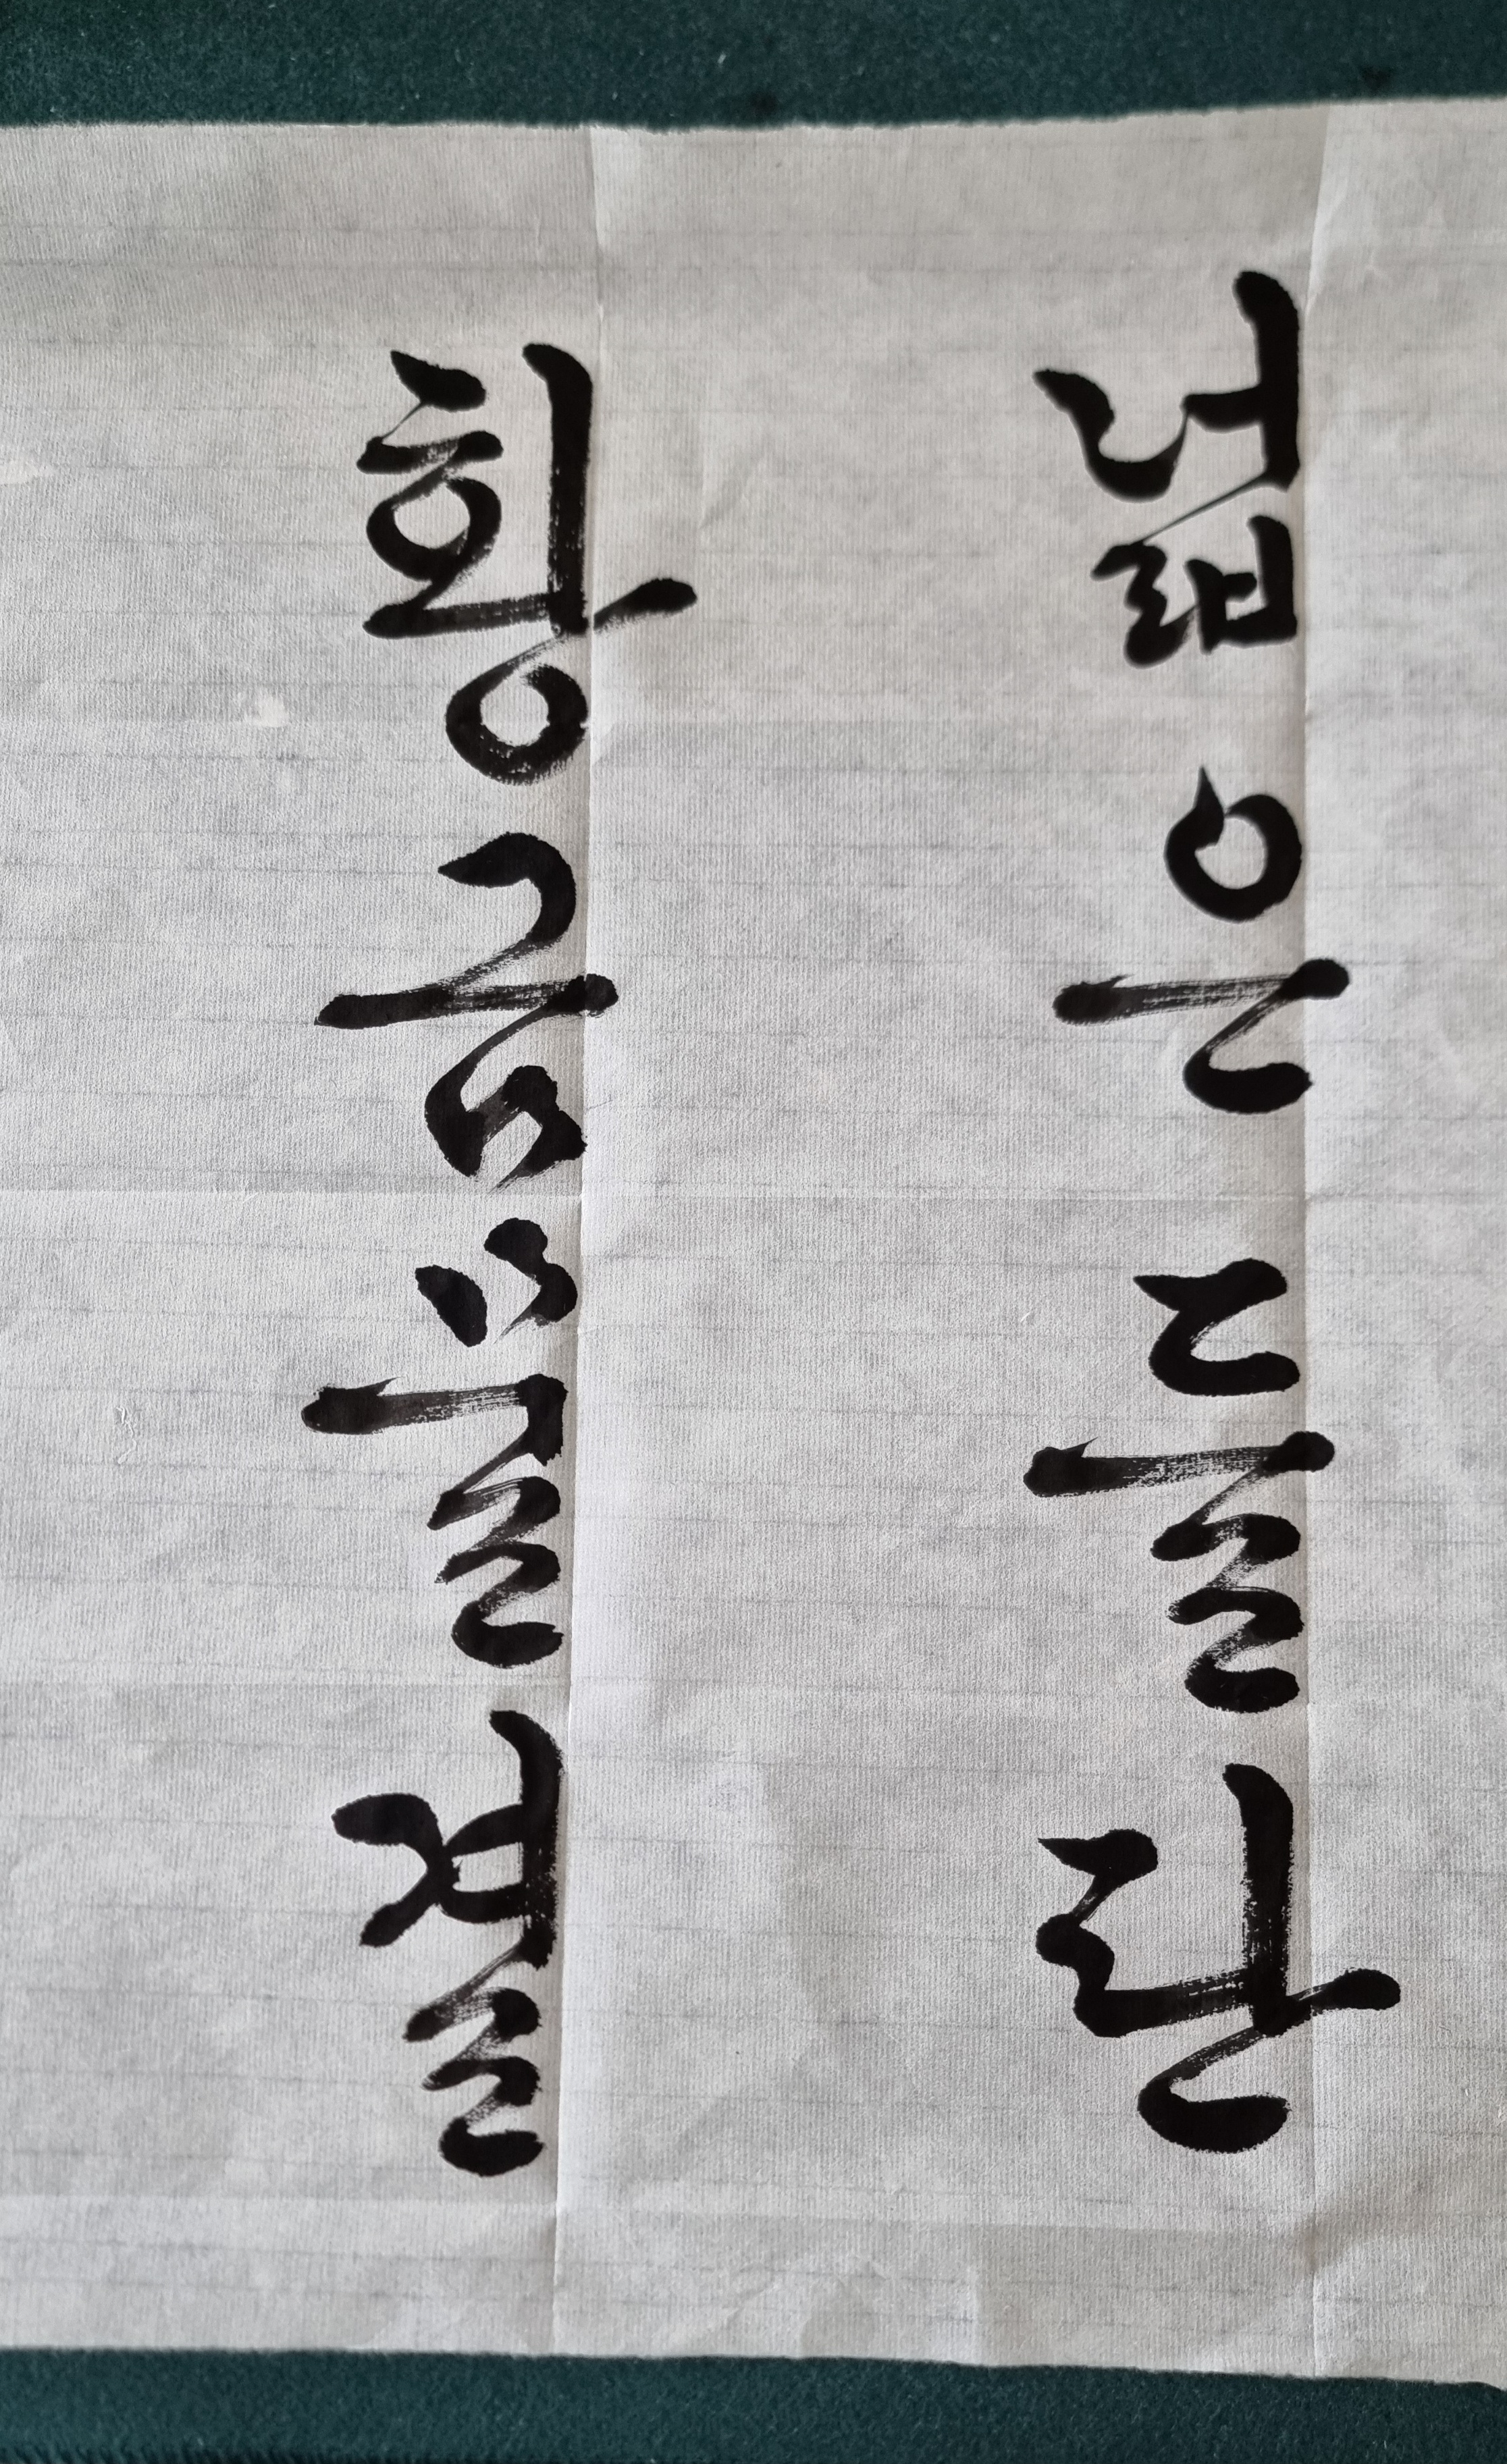 넓은들판
황금물결